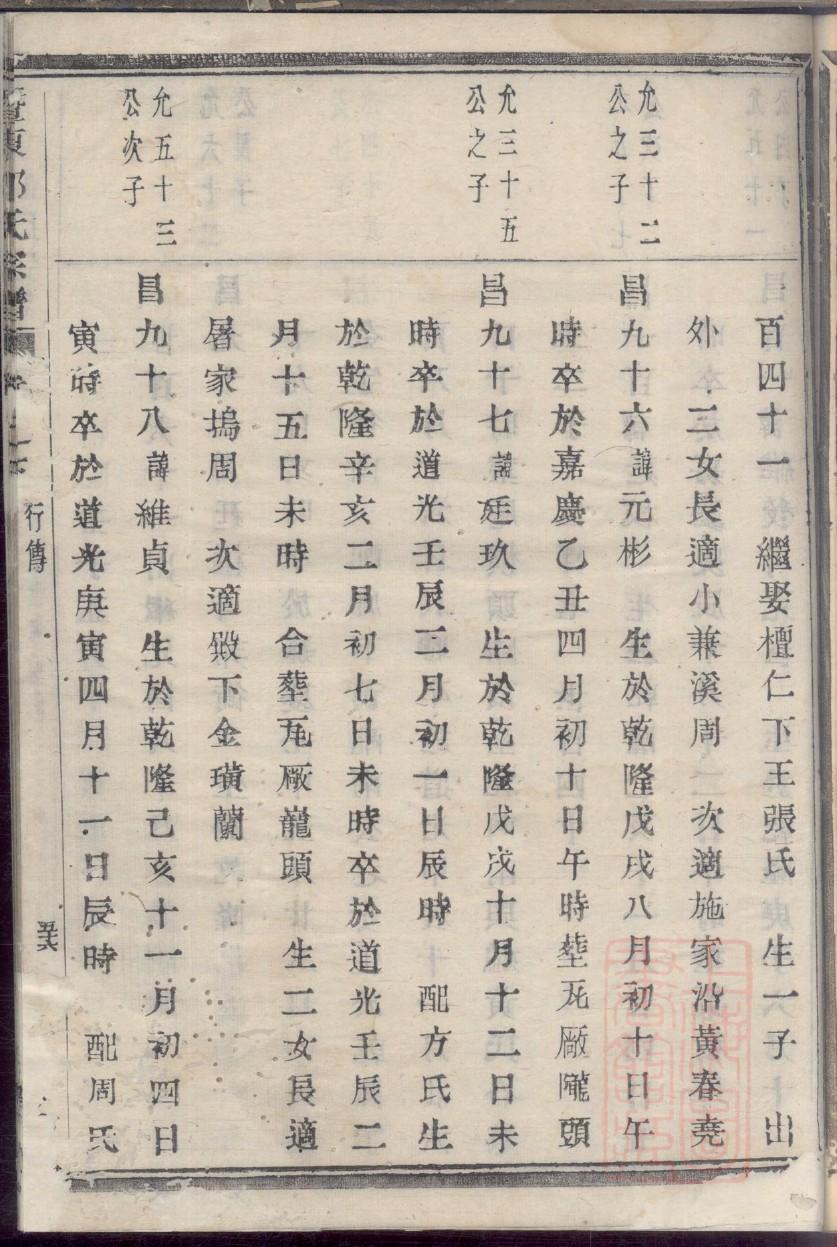 百四十一　繼娶檀仁下王張氏　生一子　出
外　二女長適小兼溪周　二次適施家沿黃春堯
允三十二
公之子
昌九十六諱元彬　生於乾隆戊戌八月初十日午
時卒於嘉慶乙丑四月初十日午時塟瓦厰隴頭
允三十五
公之子
昌九十七諱廷玖　生於乾隆戊戌十月十二日未
時卒於道光壬辰二月初一日辰時　配方氏生
於乾隆辛亥二月初七日未時卒於道光壬辰二
月十五日未時　合塟瓦厰龍頭　生二女長適
屠家塢周　次適㘰下金璜蘭
允五十三
公次子
昌九十八諱維貞　生於乾隆己亥十一月初四日
寅時卒於道光庚寅四月十一日辰時　配周氏
氏宗譜
行傳